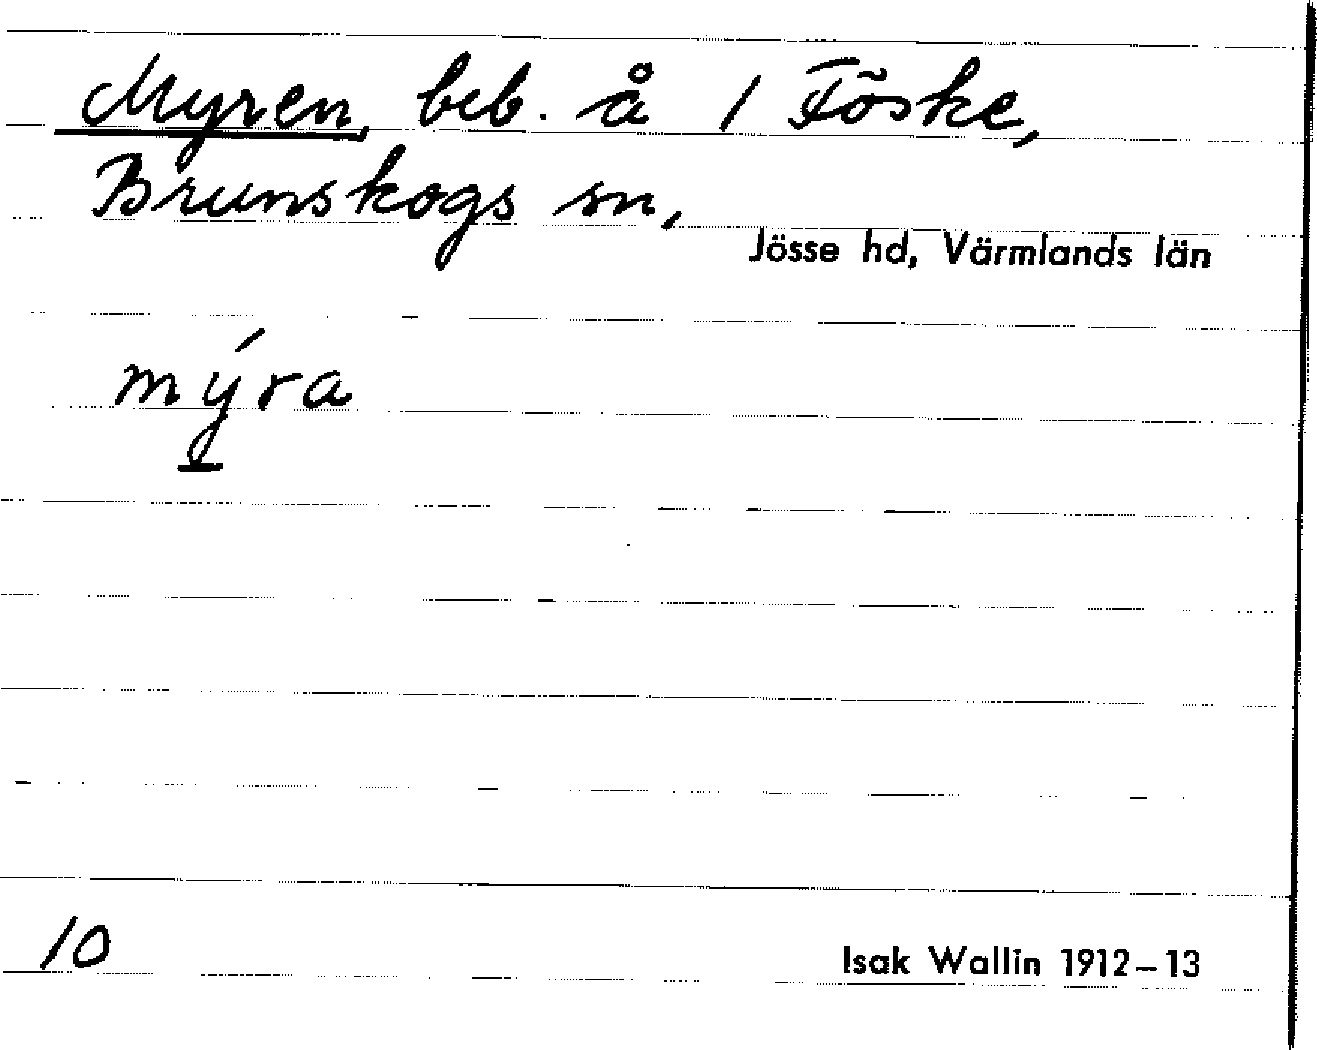 Myren, beb. å 1 Föske,
Brunskogs sn,
Jösse hd, Värmlands län
mýra
10
Isak Wallin 1912–13